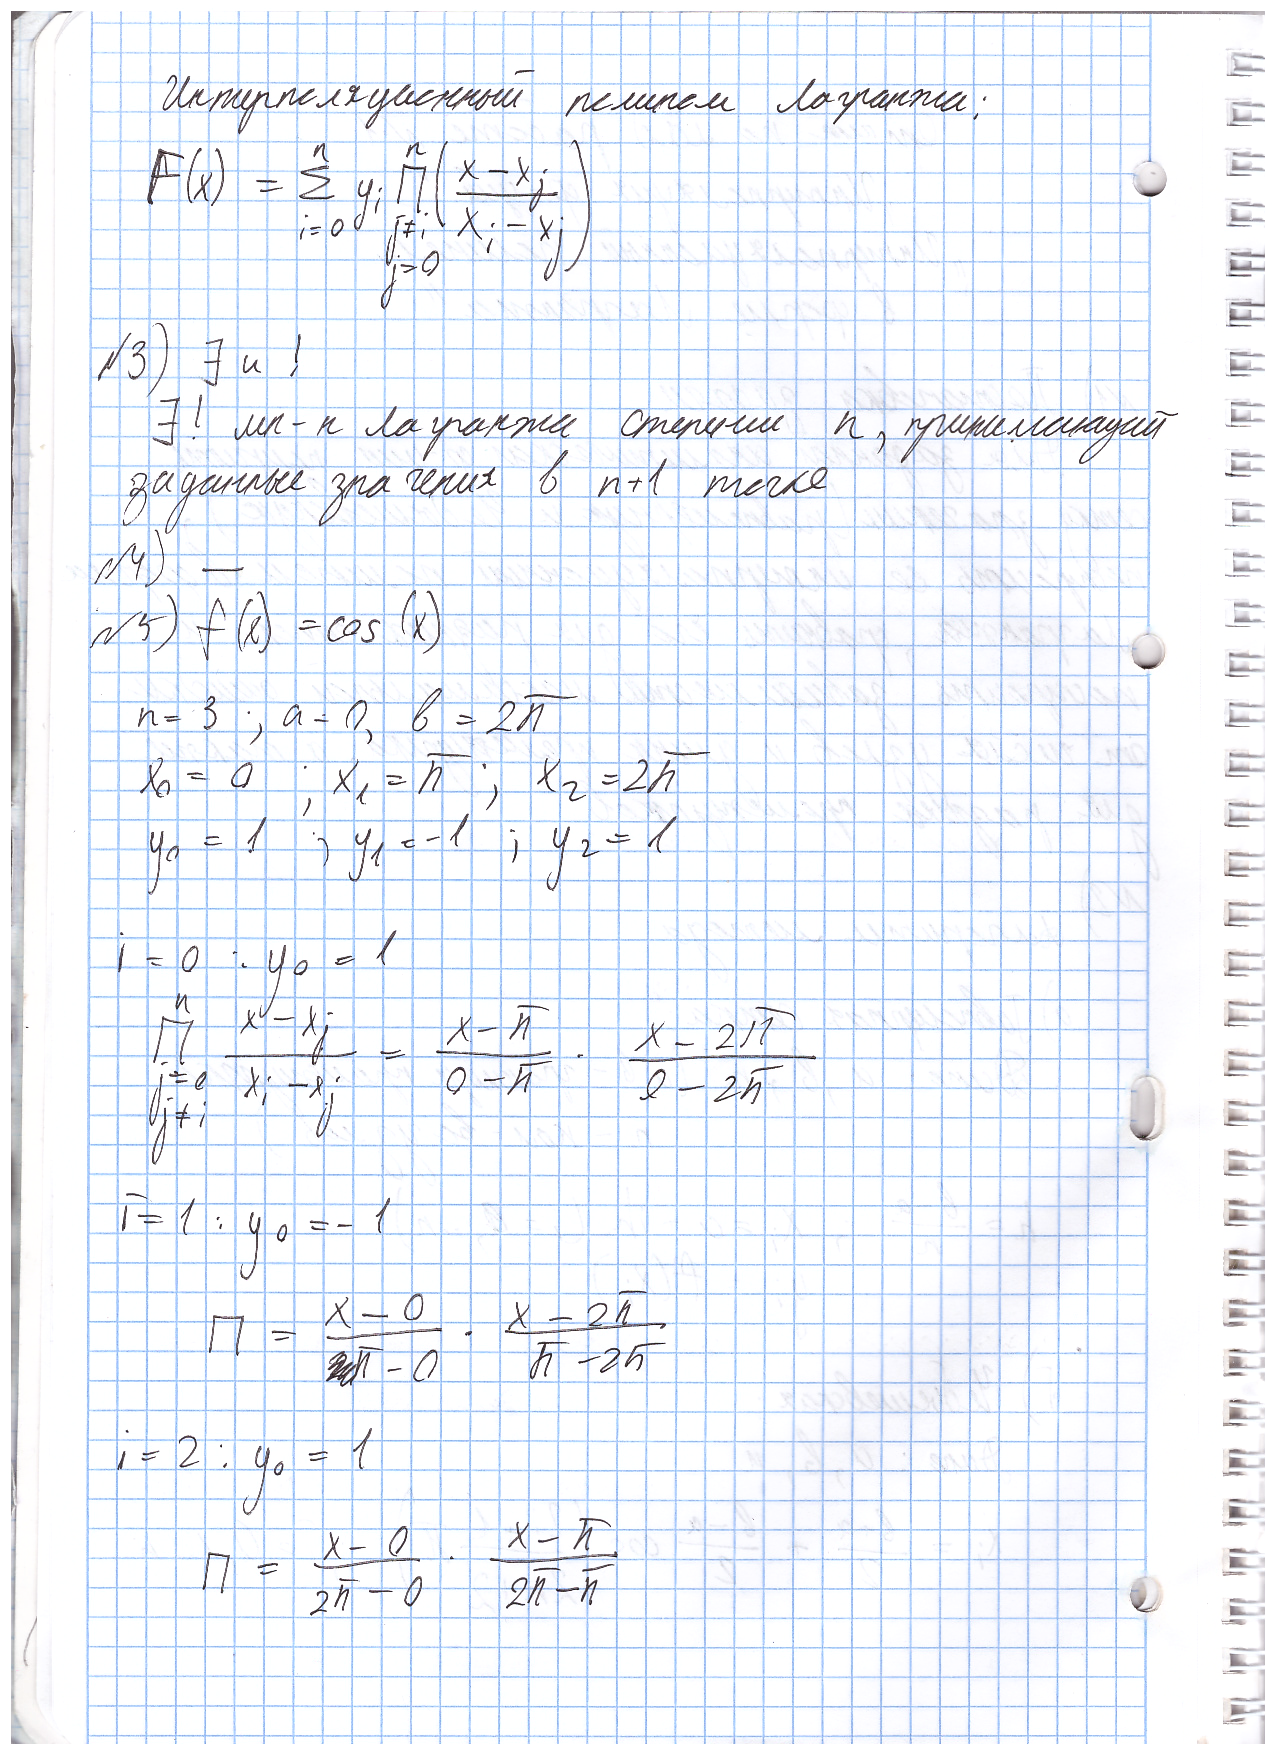 Интерполяционный полином Лагранжа:
F(x) = Σ_{i=0}^{n} y_i ∏_{j≠i, j=0}^{n} ((x - x_j)/(x_i - x_j))
№3) ∃ и !
∃! мн-н Лагранжа степени n, принимающий
заданные значения в n+1 точке
№4) —
№5) f(x) = cos(x)
n = 3 ; a = 0, b = 2π
x_0 = 0 ; x_1 = π ; x_2 = 2π
y_0 = 1 ; y_1 = -1 ; y_2 = 1
i = 0 : y_0 = 1
∏_{j=0, j≠i}^{n} (x - x_j)/(x_i - x_j) = (x - π)/(0 - π) · (x - 2π)/(0 - 2π)
i = 1 : y_0 = -1
∏ = (x - 0)/(π - 0) · (x - 2π)/(π - 2π)
i = 2 : y_0 = 1
∏ = (x - 0)/(2π - 0) · (x - π)/(2π - π)